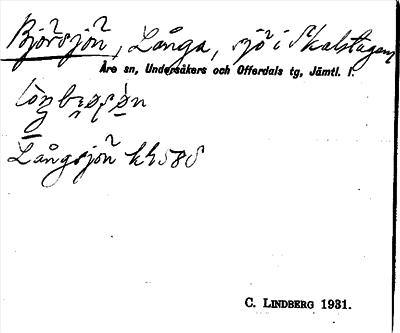 Björsjön, Långa, sjö i Skalstugans
Åre sn, Undersåkers och Offerdals tg, Jämtl. l.
Långsjön kh 585
C. LINDBERG 1931.